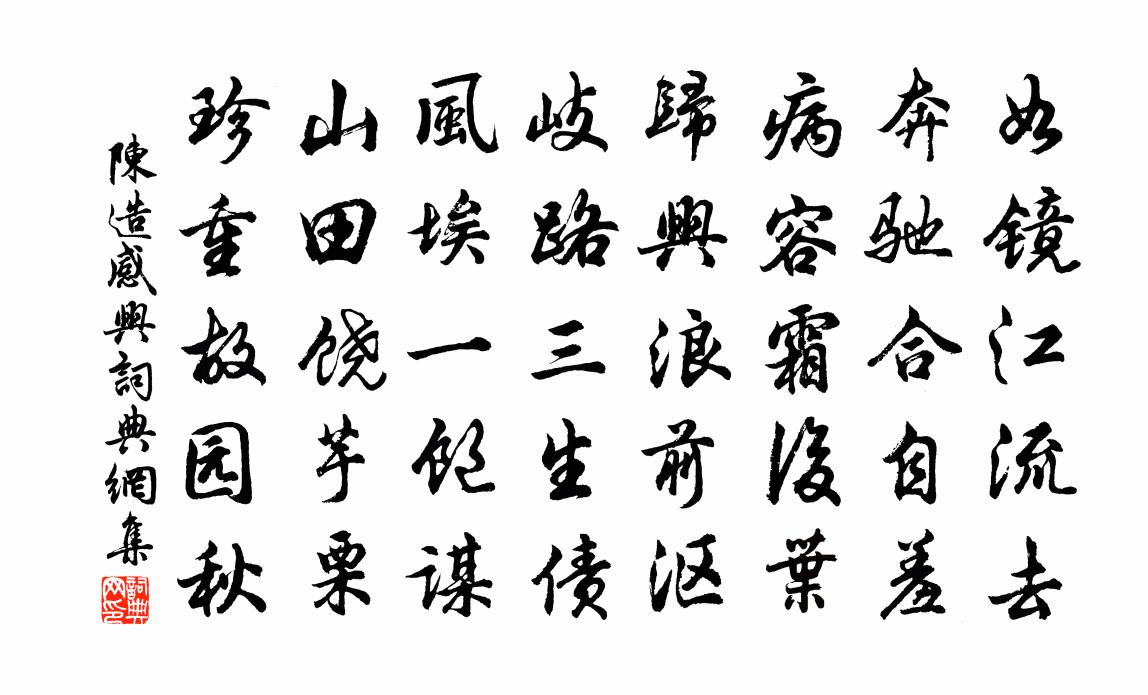 如镜江流去
奔驰合自羞
病容霜後葉
歸興浪前沤
歧路三生债
風埃一飽谋
山田饶芋栗
珍重故园秋
陳造感興詞典網集
詞典网印